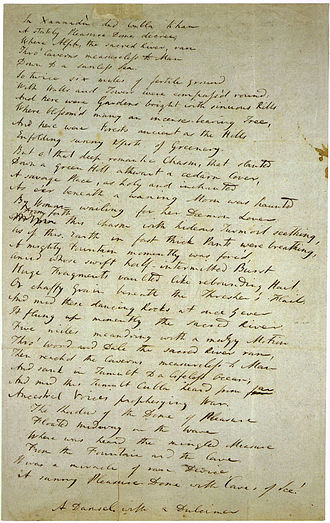 In Xannadù did Cubla Khan
A stately Pleasure-Dome decree,
Where Alph, the sacred River, ran
Thro' Caverns measureless to Man
Down to a sunless Sea.
So twice six miles of fertile ground
With Walls and Towers were compass'd round:
And here were Gardens bright with sinuous Rills
Where blossom'd many an incense-bearing Tree,
And here were Forests ancient as the Hills
Enfolding sunny Spots of Greenery.
But o! that deep romantic Chasm, that slanted
Down a green Hill athwart a cedarn Cover,
A savage Place, as holy and inchanted
As e'er beneath a waning Moon was haunted
By Woman wailing for her Daemon Lover:
From forth this Chasm with hideous Turmoil seething,
As if this Earth in fast thick Pants were breathing,
A mighty Fountain momently was forc'd,
Amid whose swift half-intermitted Burst
Huge Fragments vaulted like rebounding Hail,
Or chaffy Grain beneath the Thresher's Flail:
And mid these dancing Rocks at once & ever
It flung up momently the sacred River.
Five miles meandring with a mazy Motion
Thro' Wood and Dale the sacred River ran,
Then reach'd the Caverns measureless to Man
And sank in Tumult to a lifeless Ocean;
And mid this Tumult Cubla heard from far
Ancestral Voices prophesying War.
The Shadow of the Dome of Pleasure
Floated midway on the Wave
Where was heard the mingled Measure
From the Fountain and the Cave.
It was a miracle of rare Device,
A sunny Pleasure-Dome with Caves of Ice!
A Damsel with a Dulcimer